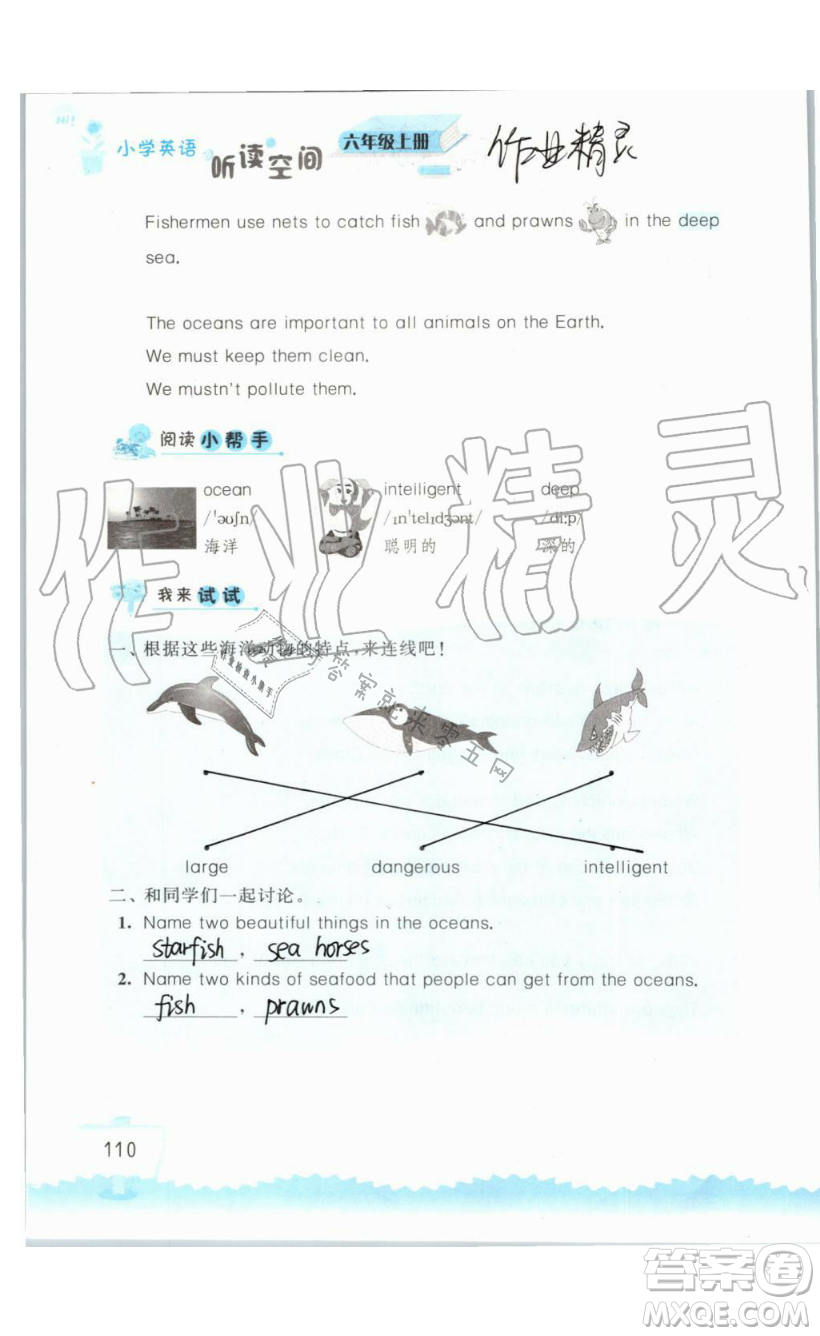 Hi!
小学英语
听读空间
六年级上册
作业精灵
Fishermen use nets to catch fish and prawns in the deep
sea.
The oceans are important to all animals on the Earth.
We must keep them clean.
We mustn't pollute them.
阅读小帮手
ocean
/ˈəʊʃn/
海洋
intelligent
/ɪnˈtelɪdʒənt/
聪明的
deep
/diːp/
深的
作业精灵
我来试试
一、根据这些海洋动物的特点,来连线吧!
作业检查小助手
答案就来零五网
large
dangerous
intelligent
二、和同学们一起讨论。
1. Name two beautiful things in the oceans.
starfish, sea horses
2. Name two kinds of seafood that people can get from the oceans.
fish, prawns
110
答案卷
MXQE.COM